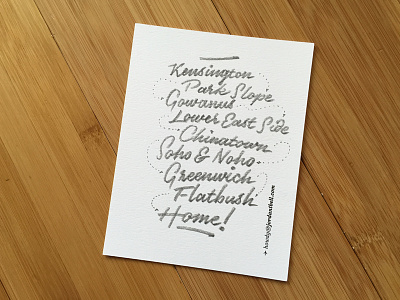 Kensington
Park Slope
Gowanus
Lower East Side
Chinatown
Soho & Noho
Greenwich
Flatbush
Home!